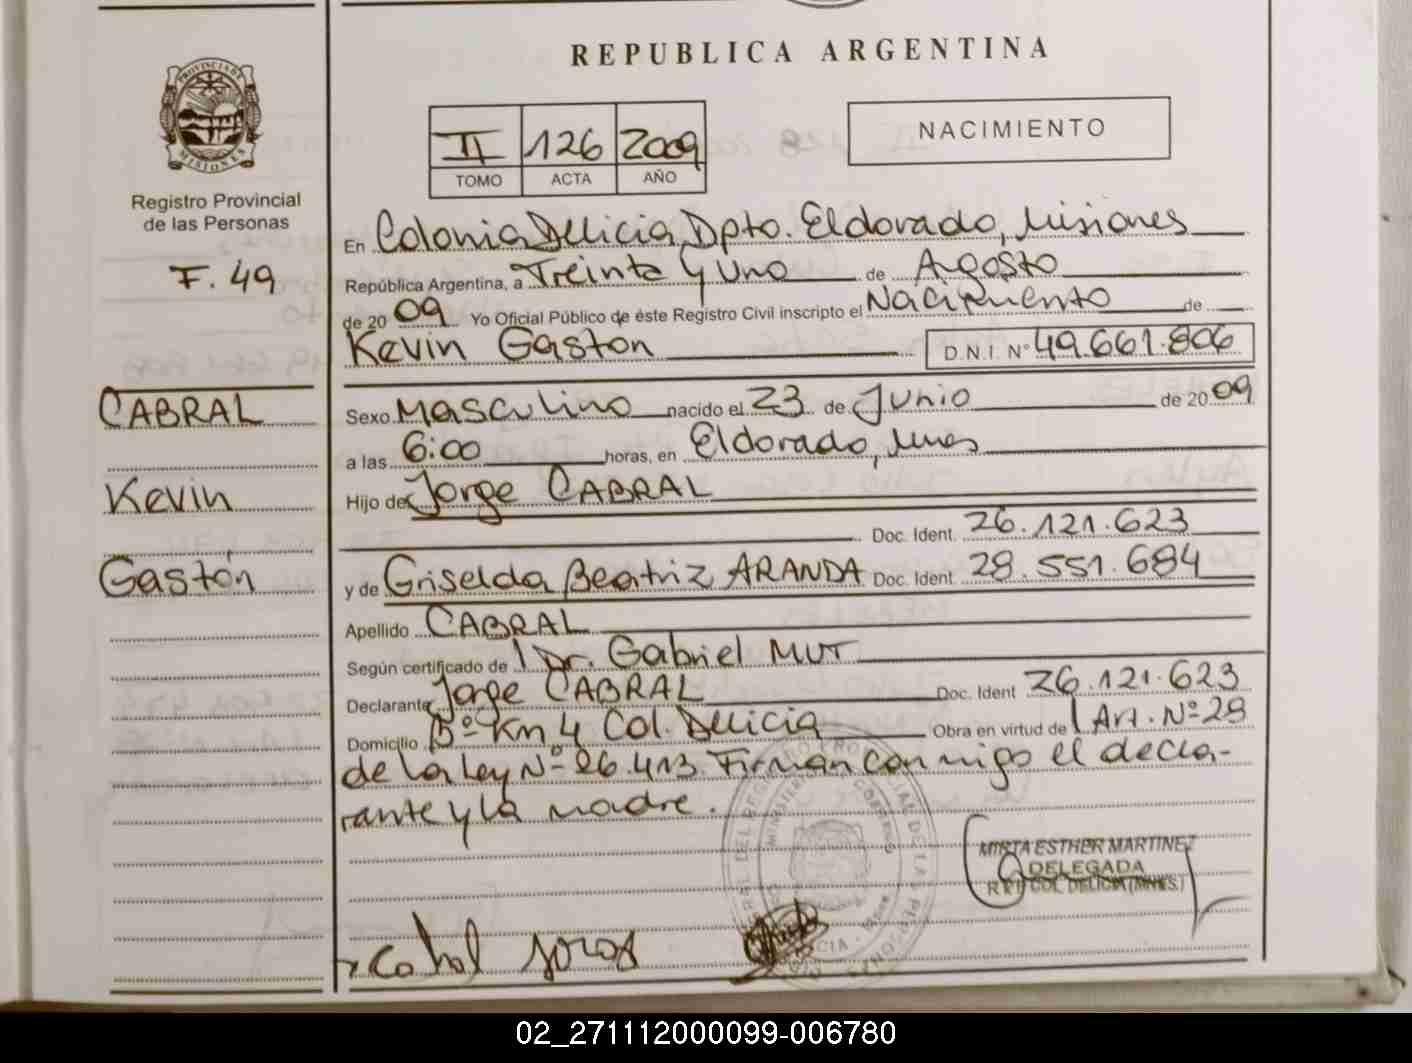 REPUBLICA ARGENTINA
PROVINCIA DE
MISIONES
II 126 2009
TOMO ACTA AÑO
NACIMIENTO
Registro Provincial
de las Personas
F. 49
En Colonia Delicia, Dpto. Eldorado, Misiones
República Argentina, a Treinta y uno de Agosto
de 20 09 Yo Oficial Público de éste Registro Civil inscripto el Nacimiento de
Kevin Gaston D.N.I. Nº 49.661.806
CABRAL
Kevin
Gastón
Sexo Masculino nacido el 23 de Junio de 20 09
a las 6:00 horas, en Eldorado, Mnes
Hijo de Jorge CABRAL
Doc. Ident. 26.121.623
y de Griselda Beatriz ARANDA Doc. Ident. 28.551.684
Apellido CABRAL
Según certificado de Dr. Gabriel MUT
Declarante Jorge CABRAL Doc. Ident 26.121.623
Domicilio Bº Km 4 Col. Delicia Obra en virtud de Art. Nº 29
de la Ley Nº 26.413. Firman conmigo el decla-
rante y la madre.
MIRTA ESTHER MARTINEZ
DELEGADA
COL. DELICIA (MNES.)
02_271112000099-006780